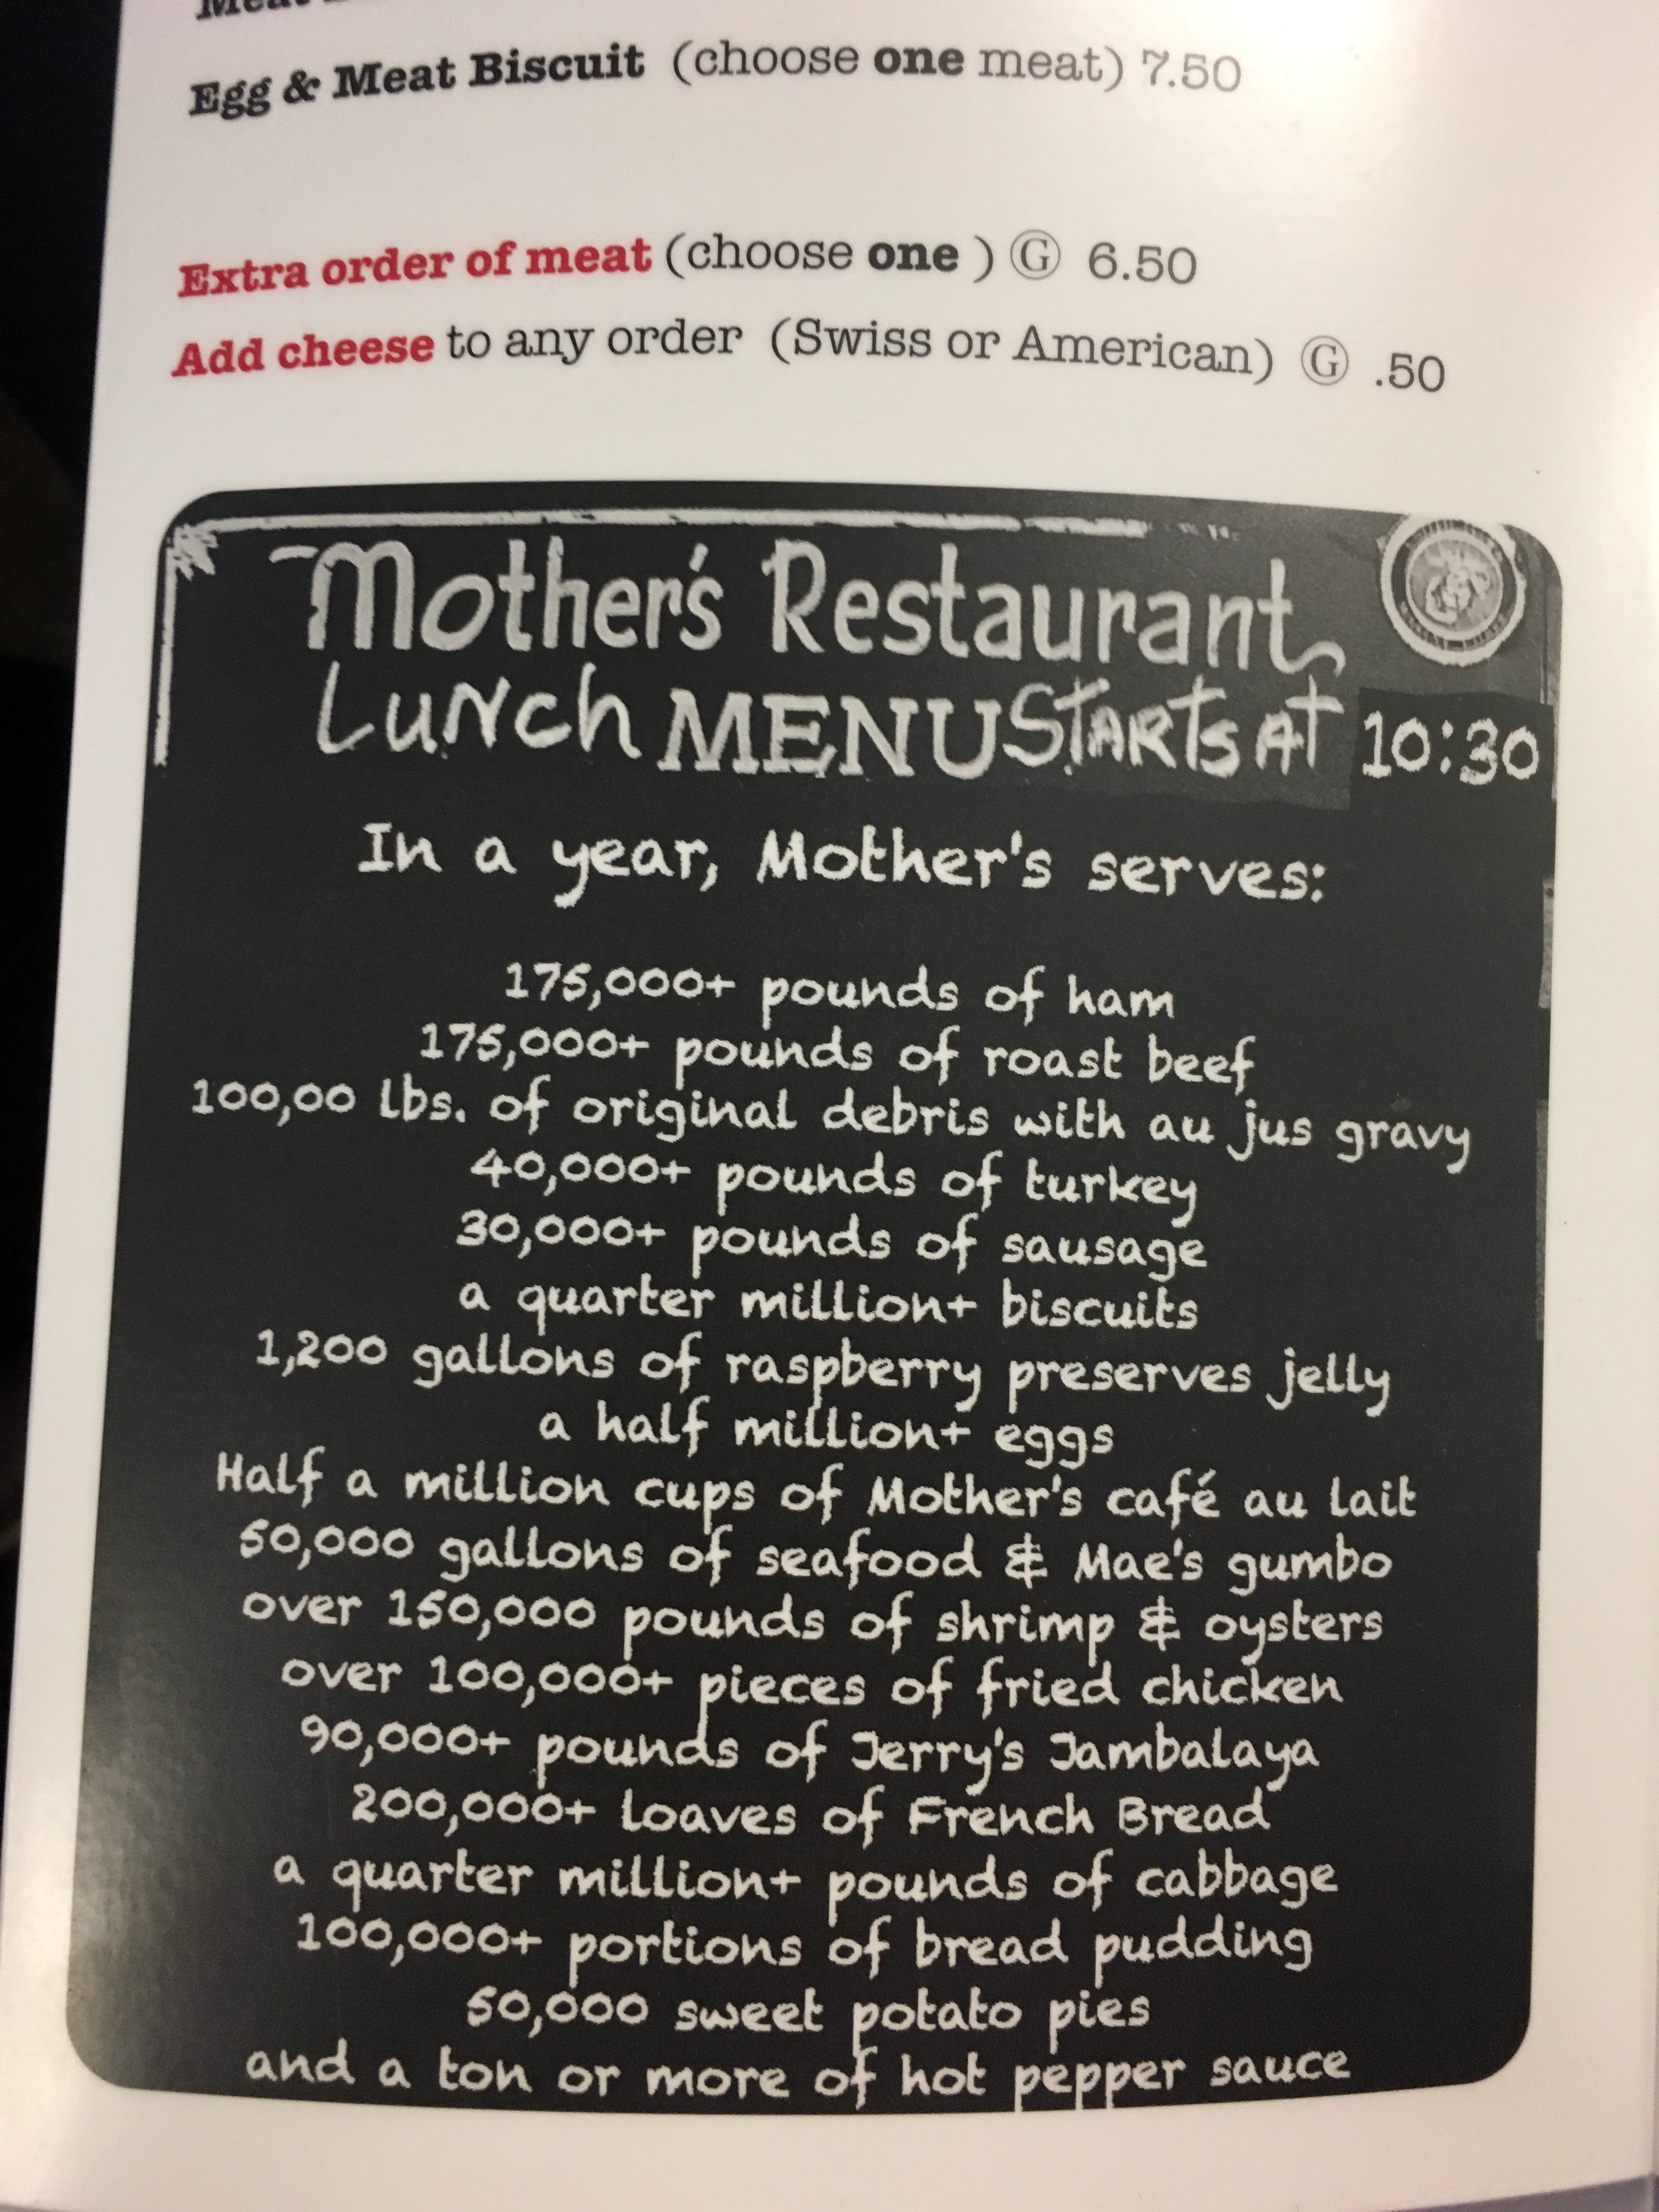 Egg & Meat Biscuit (choose one meat) 7.50
Extra order of meat (choose one ) Ⓖ 6.50
Add cheese to any order (Swiss or American) Ⓖ .50
Mother's Restaurant
Lunch MENU STARTS AT 10:30
In a year, Mother's serves:
175,000+ pounds of ham
175,000+ pounds of roast beef
100,00 lbs. of original debris with au jus gravy
40,000+ pounds of turkey
30,000+ pounds of sausage
a quarter million+ biscuits
1,200 gallons of raspberry preserves jelly
a half million+ eggs
Half a million cups of Mother's café au lait
50,000 gallons of seafood & Mae's gumbo
over 150,000 pounds of shrimp & oysters
over 100,000+ pieces of fried chicken
90,000+ pounds of Jerry's Jambalaya
200,000+ loaves of French Bread
a quarter million+ pounds of cabbage
100,000+ portions of bread pudding
50,000 sweet potato pies
and a ton or more of hot pepper sauce